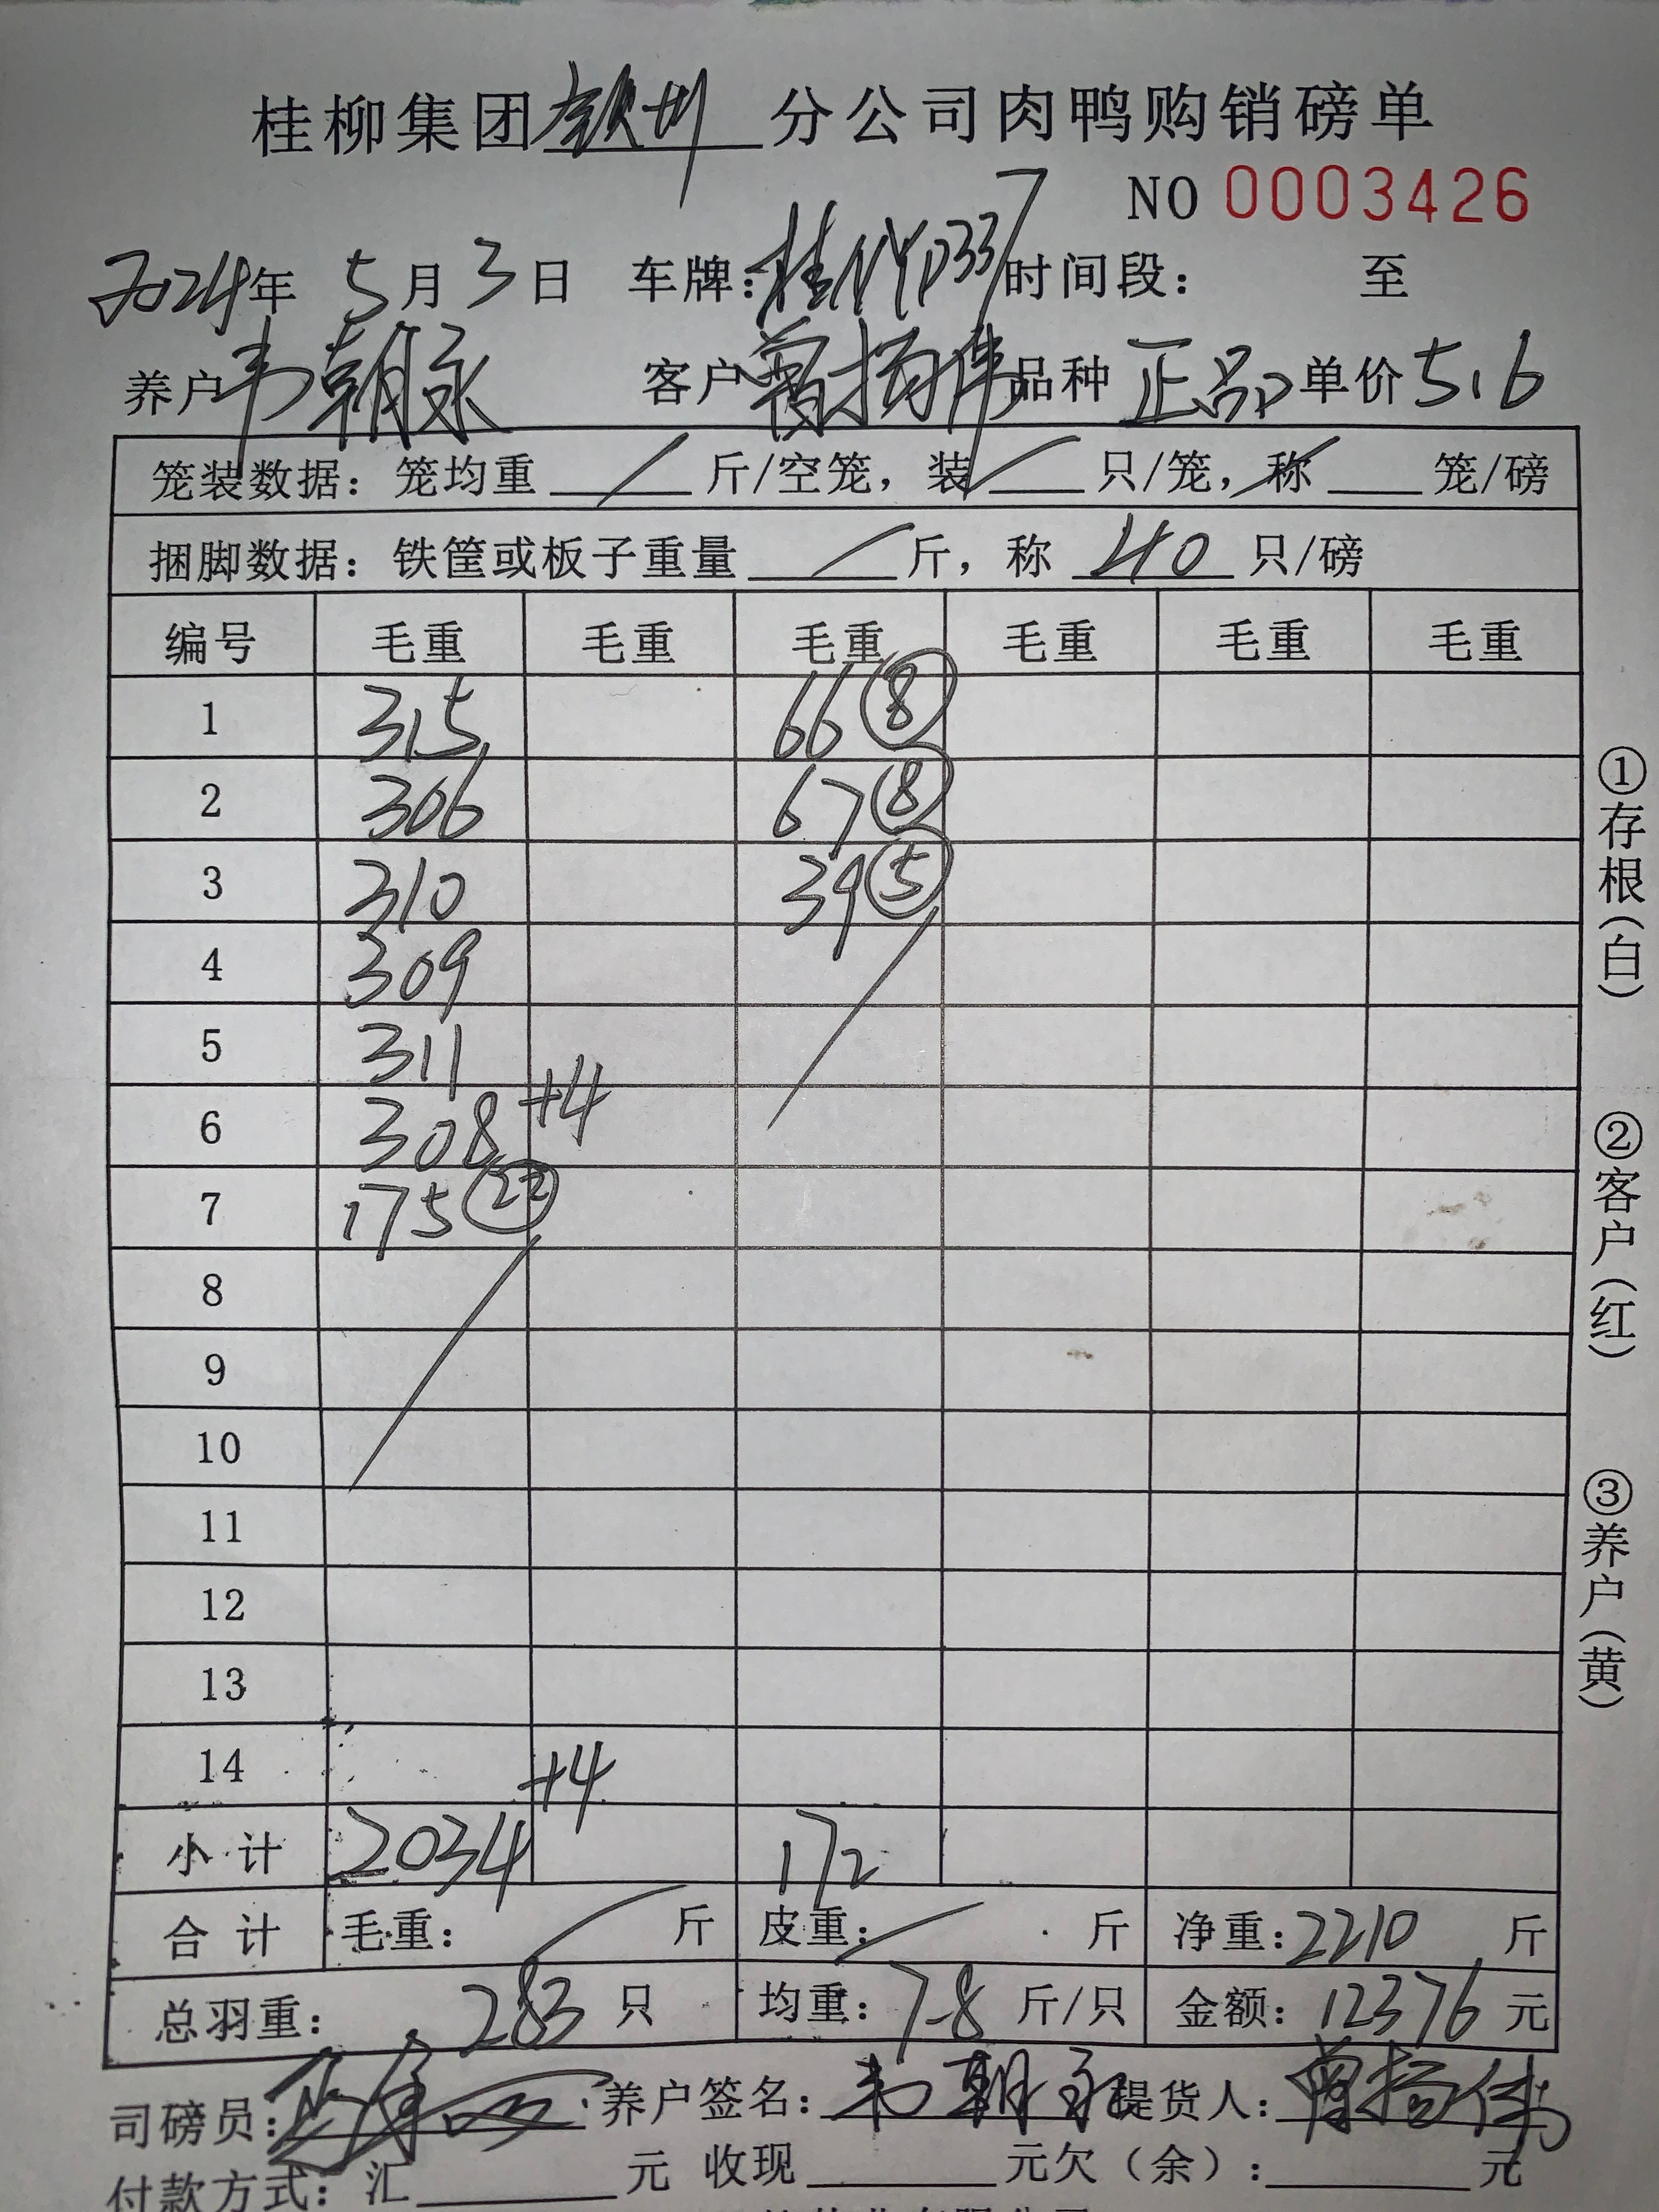 桂柳集团钦州分公司肉鸭购销磅单
NO 0003426
2024年 5月3日 车牌：桂 时间段： 至
养户韦朝永 客户曾扬伟 品种 正品 单价5.6
笼装数据：笼均重 / 斤/空笼，装 / 只/笼，称 / 笼/磅
捆脚数据：铁筐或板子重量 / 斤，称 40 只/磅
编号 毛重 毛重 毛重 毛重 毛重 毛重
1 315 66 ⑧
2 306 67 ⑧
3 310 39 ⑤
4 309
5 311
6 308 +4
7 175 ㉒
8
9
10
11
12
13
14 +4
小计 2034 172
合计 毛重： / 斤 皮重： / 斤 净重：2210 斤
总羽重： 283 只 均重：7.8 斤/只 金额：12376 元
司磅员： 养户签名：韦朝永 提货人：曾扬伟
付款方式：汇 元 收现 元欠（余）： 元
①存根（白）
②客户（红）
③养户（黄）